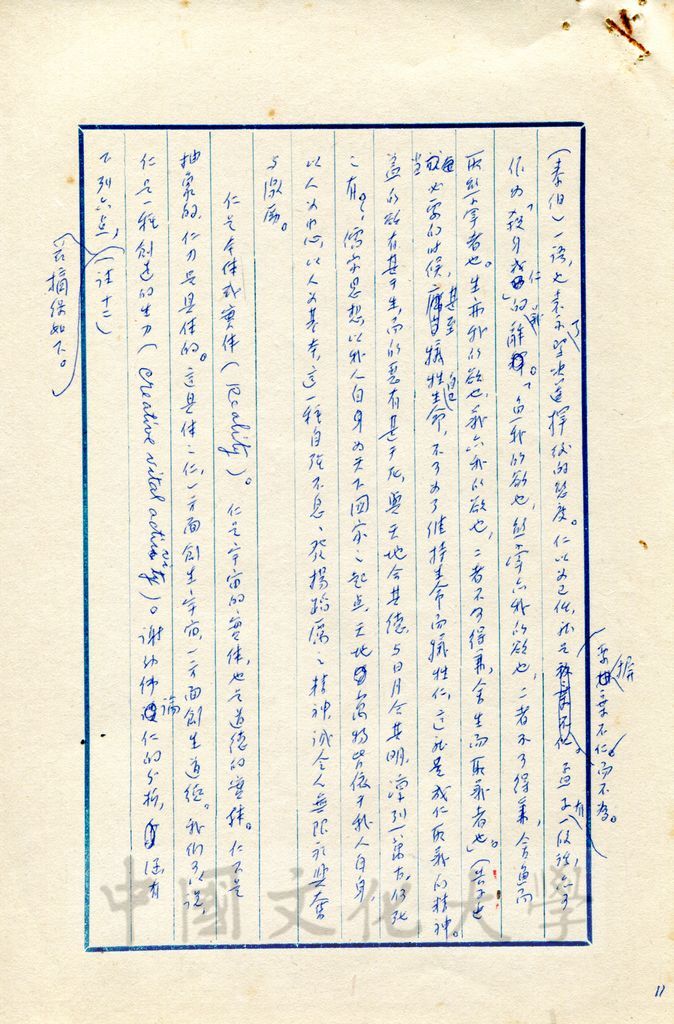 (泰伯)一語,也表示堅決選擇後的態度。仁以為己任,就是
平據章不仁而不為。孟子有一段話,亦可
作為「殺身成仁」的解釋。「魚我所欲也,熊掌亦我所欲也,二者不可得兼,舍魚而
取熊掌者也。生亦我所欲也,義亦我所欲也,二者不可得兼,舍生而取義者也。」(告子上)
當必要的時候,甚至犧牲自己生命,不可為了維持生命而犧牲仁,這就是成仁取義的精神。
蓋所欲有甚于生,而所惡有甚于死,與天地合其德,與日月合其明,
之有?儒家思想,以我人自身為天下國家之起点,天地萬物皆依于我人自身,
以人為中心,以人為基本,這一種自強不息、發揚蹈厲之精神,誠令人無限於興奮
與激勵。
仁是本体或實体(Reality)。仁是宇宙的實体,也是道德的實体。仁不是
抽象的,仁乃是具体的。這具体之仁,一方面創生宇宙,一方面創生道德。我們可以說,
仁是一種創造的生力(Creative vital activity)。謝幼偉論仁的分析,還有
下列六点,(註十二)
茲摘錄如下。
11
中國文化大學